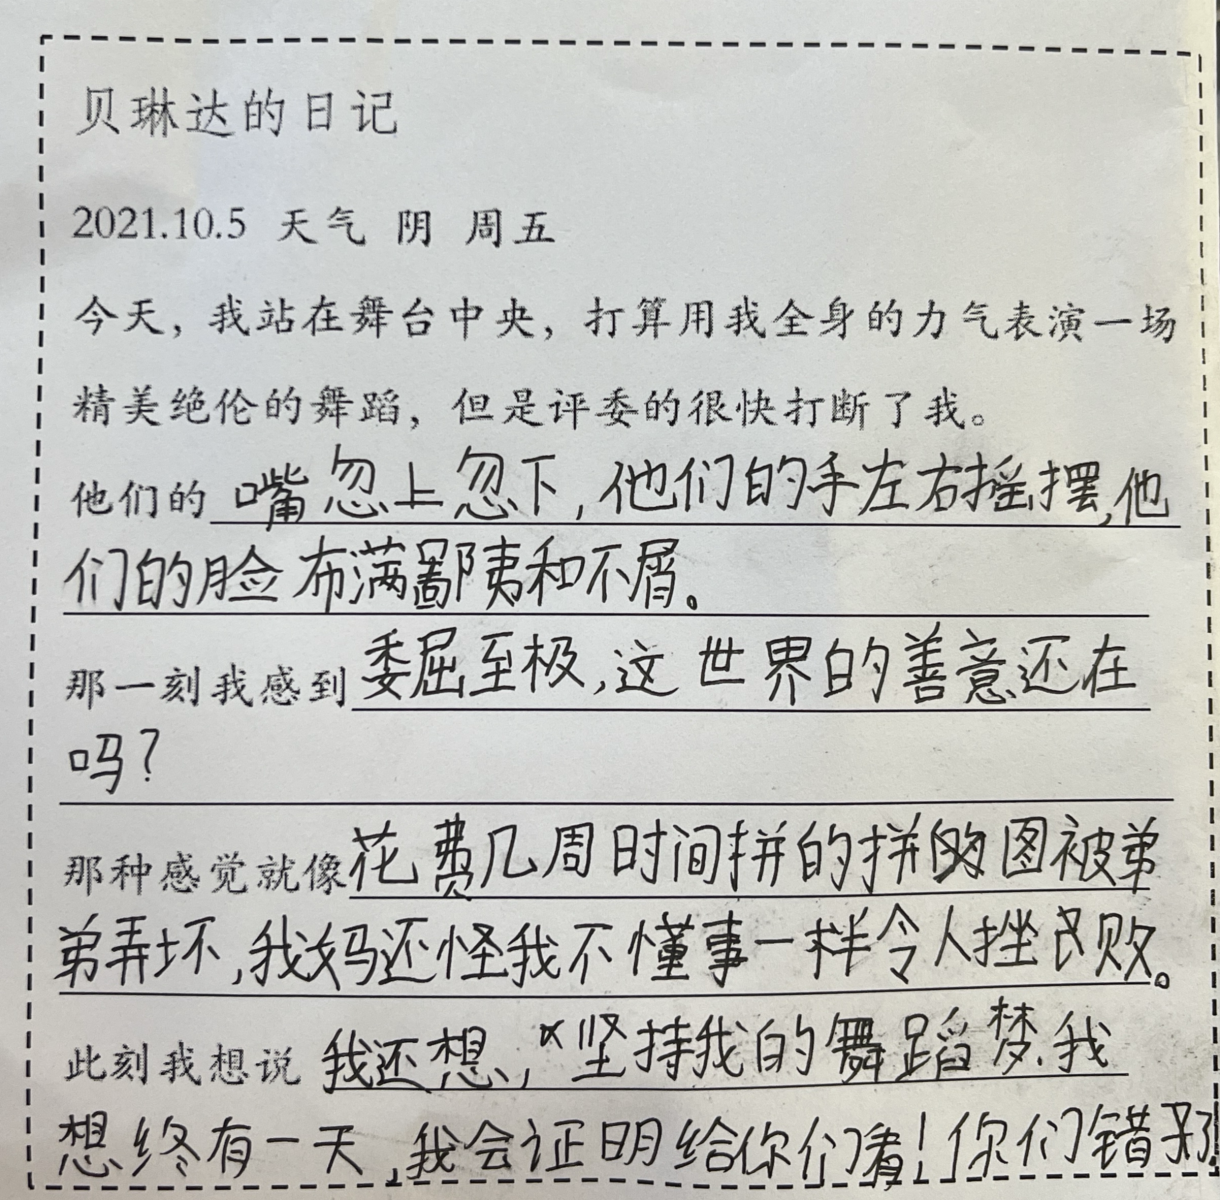 贝琳达的日记
2021.10.5 天气 阴 周五
今天，我站在舞台中央，打算用我全身的力气表演一场
精美绝伦的舞蹈，但是评委的很快打断了我。
他们的嘴忽上忽下，他们的手左右摇摆，他
们的脸布满鄙夷和不屑。
那一刻我感到委屈至极，这世界的善意还在
吗？
那种感觉就像花费几周时间拼的拼图被弟
弟弄坏，我妈还怪我不懂事一样令人挫败。
此刻我想说我还想，坚持我的舞蹈梦，我
想终有一天，我会证明给你们看！你们错了